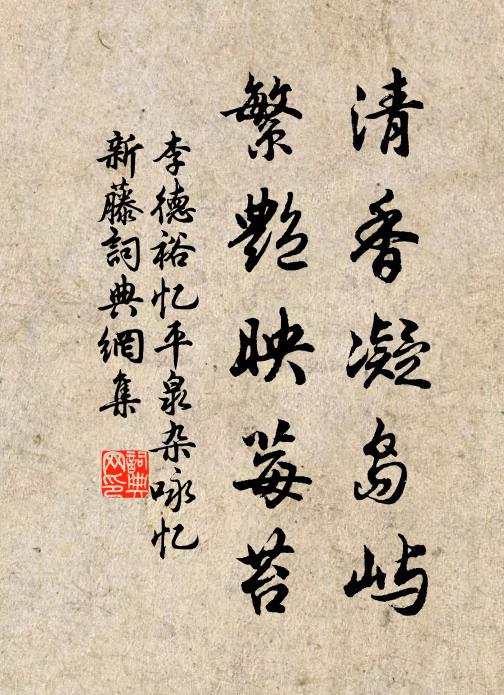 清香凝岛屿
繁艳映莓苔
李德裕忆平泉杂咏忆
新藤詞典網集
詞典
网印